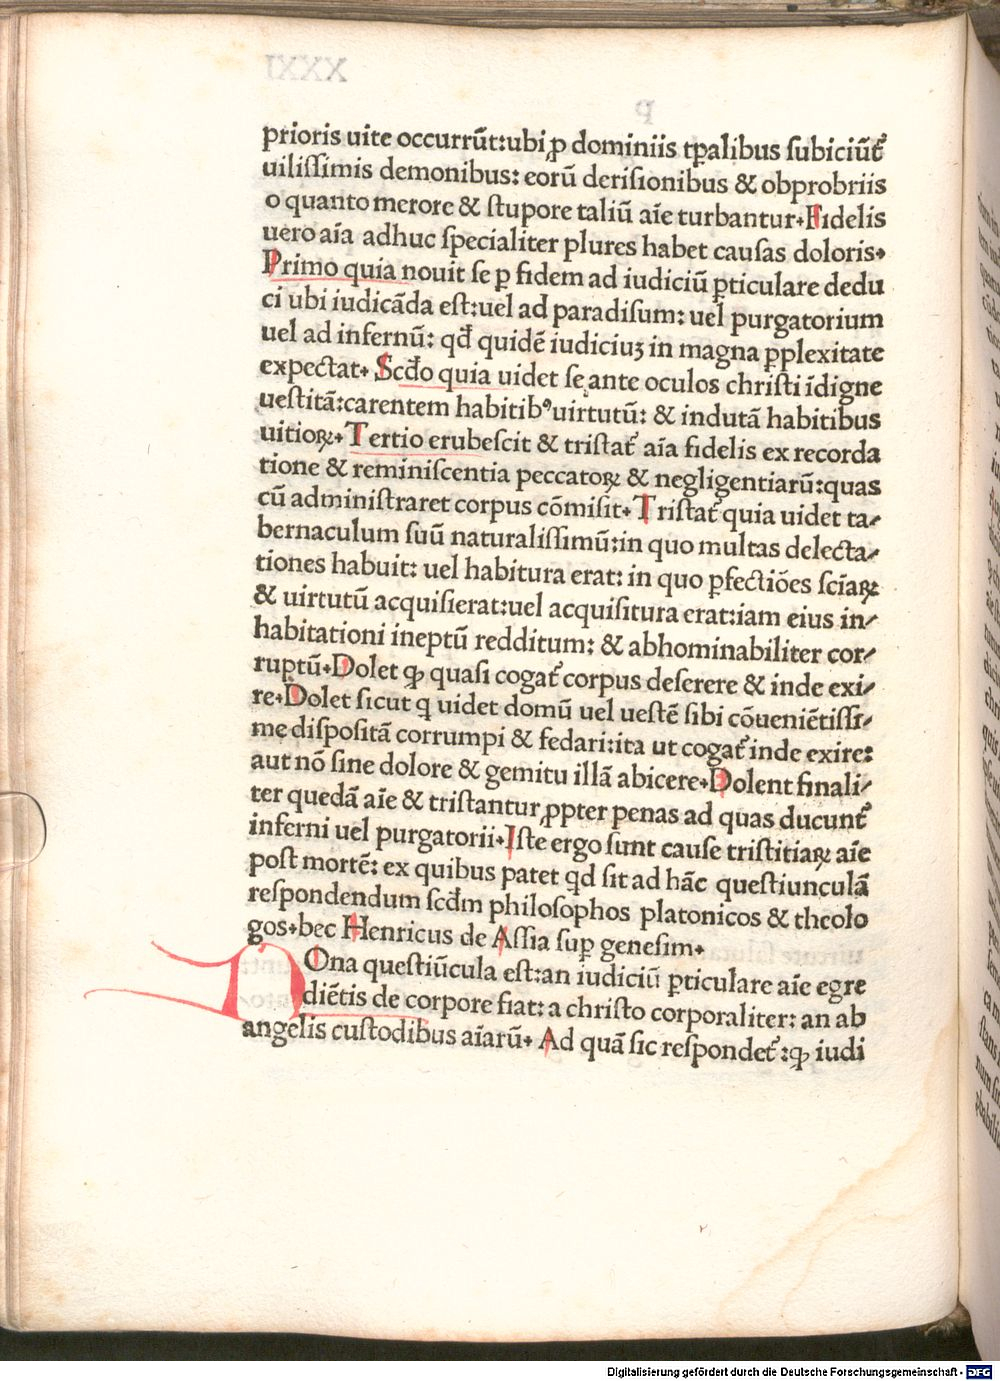 prioris uite occurrūt:ubi ꝓ dominiis tꝑalibus ſubiciūt᷑
uiliſſimis demonibus: eorū deriſionibus & obprobriis
o quanto merore & ſtupore taliū aīe turbantur. Fidelis
uero aīa adhuc ſpecialiter plures habet cauſas doloris.
Primo quia nouit ſe ꝑ fidem ad iudiciū ꝑticulare dedu
ci ubi iudicāda eſt:uel ad paradiſum: uel purgatorium
uel ad infernū: qđ quidē iudiciuꝫ in magna ꝑplexitate
expectat. Scđo quia uidet ſe ante oculos chriſti īdigne
ueſtitā:carentem habitibꝰ uirtutū: & indutā habitibus
uitioꝝ. Tertio erubeſcit & triſtat᷑ aīa fidelis ex recorda
tione & reminiſcentia peccatoꝝ & negligentiarū:quas
cū adminiſtraret corpus cōmiſit. Triſtat᷑ quia uidet ta-
bernaculum ſuū naturaliſſimū:in quo multas delecta-
tiones habuit: uel habitura erat: in quo ꝑfectiōes ſcīaꝝ
& uirtutū acquiſierat:uel acquiſitura erat:iam eius in-
habitationi ineptū redditum: & abhominabiliter cor-
ruptū. Dolet ꝙ quaſi cogat᷑ corpus deſerere & inde exi-
re. Dolet ſicut q uidet domū uel ueſtē ſibi cōueniētiſſi-
me diſpoſitā corrumpi & fedari:ita ut cogat᷑ inde exire:
aut nō ſine dolore & gemitu illā abicere. Dolent finali-
ter quedā aīe & triſtantur ꝓpter penas ad quas ducunt᷑
inferni uel purgatorii. Iſte ergo ſunt cauſe triſtitiaꝝ aīe
poſt mortē: ex quibus patet qđ ſit ad hāc queſtiunculā
reſpondendum ſcđm philoſophos platonicos & theolo
gos. hec Henricus de Aſſia ſuꝑ geneſim.
DOna queſtiūcula eſt:an iudiciū ꝑticulare aīe egre
diētis de corpore fiat: a chriſto corporaliter: an ab
angelis cuſtodibus aīarū. Ad quā ſic reſpondet᷑:ꝙ iudi
Digitalisierung gefördert durch die Deutsche Forschungsgemeinschaft - DFG